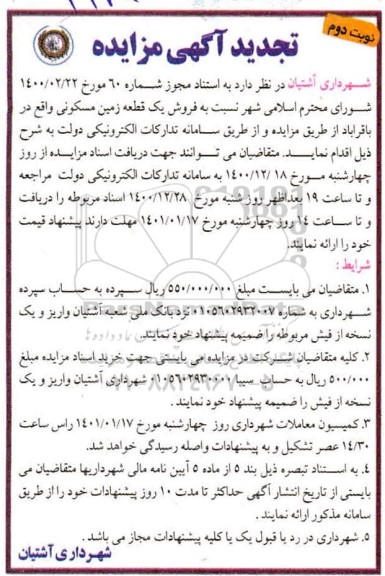 نوبت دوم
تجدید آگهی مزایده
شهرداری آشتیان در نظر دارد به استناد مجوز شماره ۶۰ مورخ ۱۴۰۰/۰۲/۲۲
شورای محترم اسلامی شهر نسبت به فروش یک قطعه زمین مسکونی واقع در
باقرآباد از طریق مزایده و از طریق سامانه تدارکات الکترونیکی دولت به شرح
ذیل اقدام نماید. متقاضیان می توانند جهت دریافت اسناد مزایده از روز
چهارشنبه مورخ ۱۴۰۰/۱۲/۱۸ به سامانه تدارکات الکترونیکی دولت مراجعه
و تا ساعت ۱۹ بعدازظهر روز شنبه مورخ ۱۴۰۰/۱۲/۲۸ اسناد مربوطه را دریافت
و تا ساعت ۱۴ روز چهارشنبه مورخ ۱۴۰۱/۰۱/۱۷ مهلت دارند پیشنهاد قیمت
خود را ارائه نمایند.
شرایط :
۱. متقاضیان می بایست مبلغ ۵۵۰/۰۰۰/۰۰۰ ریال سپرده به حساب سپرده
شهرداری به شماره ۰۱۰۵۶۰۲۹۳۲۰۰۷ نزد بانک ملی شعبه آشتیان واریز و یک
نسخه از فیش مربوطه را ضمیمه پیشنهاد خود نمایند.
۲. کلیه متقاضیان شرکت در مزایده می بایستی جهت خرید اسناد مزایده مبلغ
۵۰۰/۰۰۰ ریال به حساب سیبا ۰۱۰۵۶۰۲۹۳۰۰۰۱ شهرداری آشتیان واریز و یک
نسخه از فیش را ضمیمه پیشنهاد خود نمایند .
۳. کمیسیون معاملات شهرداری روز چهارشنبه مورخ ۱۴۰۱/۰۱/۱۷ راس ساعت
۱۴/۳۰ عصر تشکیل و به پیشنهادات واصله رسیدگی خواهد شد.
۴. به استناد تبصره ذیل بند ۵ از ماده ۵ آیین نامه مالی شهرداریها متقاضیان می
بایستی از تاریخ انتشار آگهی حداکثر تا مدت ۱۰ روز پیشنهادات خود را از طریق
سامانه مذکور ارائه نمایند .
۵. شهرداری در رد یا قبول یک یا کلیه پیشنهادات مجاز می باشد .
شهرداری آشتیان